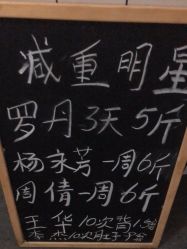 减重明星
罗丹3天5斤
杨家芳一周6斤
周倩一周6斤
王华10次背小
杰10次肚子